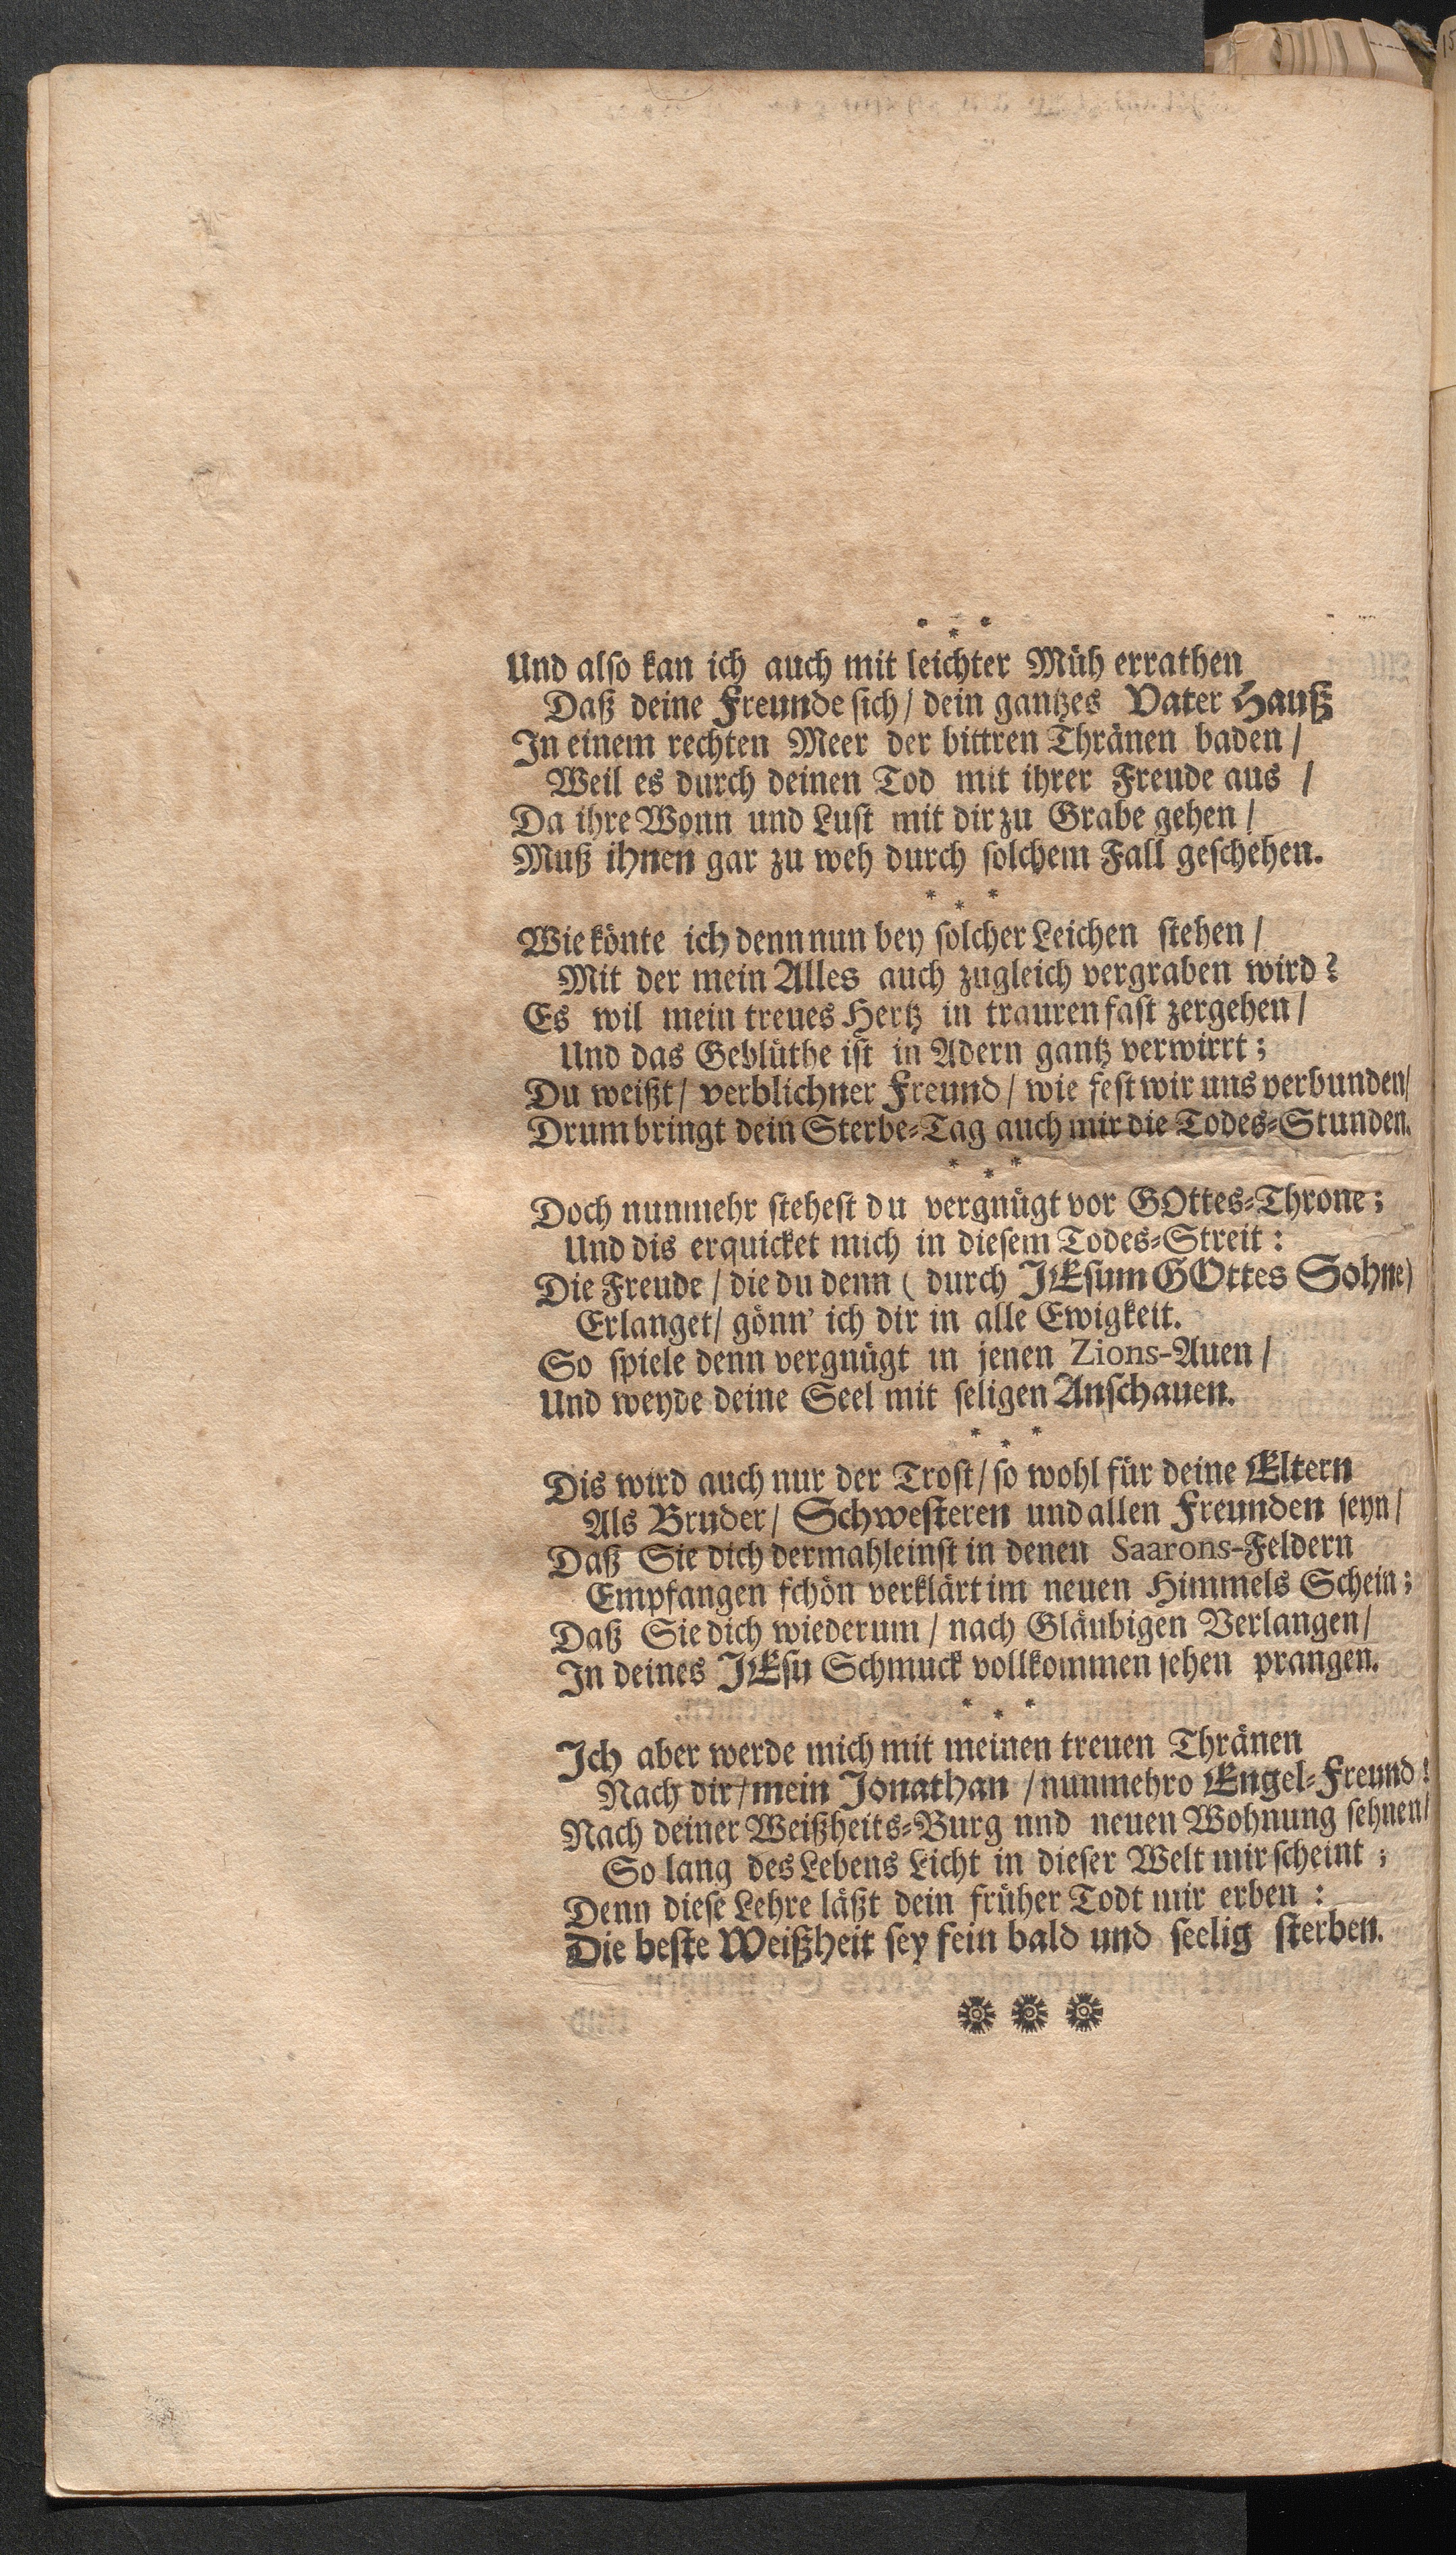 * * *
Und also kan ich auch mit leichter Müh errathen
Daß deine Freunde sich / dein gantzes Vater Hauß
In einem rechten Meer der bittren Thränen baden /
Weil es durch deinen Tod mit ihrer Freude aus /
Da ihre Wonn und Lust mit dir zu Grabe gehen /
Muß ihnen gar zu weh durch solchem Fall geschehen.
* * *
Wie könte ich denn nun bey solcher Leichen stehen /
Mit der mein Alles auch zugleich vergraben wird?
Es wil mein treues Hertz in trauren fast zergehen /
Und das Geblüthe ist in Adern gantz verwirrt;
Du weißt / verblichner Freund / wie fest wir uns verbunden /
Drum bringt dein Sterbe-Tag auch mir die Todes-Stunden.
* * *
Doch nunmehr stehest du vergnügt vor GOttes-Throne;
Und dis erquicket mich in diesem Todes-Streit:
Die Freude / die du denn ( durch JEsum GOttes Sohne)
Erlanget / gönn' ich dir in alle Ewigkeit.
So spiele denn vergnügt in jenen Zions-Auen /
Und weyde deine Seel mit seligen Anschauen.
* * *
Dis wird auch nur der Trost / so wohl für deine Eltern
Als Bruder / Schwesteren und allen Freunden seyn /
Daß Sie dich dermahleinst in denen Saarons-Feldern
Empfangen schön verklärt im neuen Himmels Schein;
Daß Sie dich wiederum / nach Gläubigen Verlangen /
In deines JEsu Schmuck vollkommen sehen prangen.
* * *
Ich aber werde mich mit meinen treuen Thränen
Nach dir / mein Jonathan / nunmehro Engel-Freund!
Nach deiner Weißheits-Burg nnd neuen Wohnung sehnen /
So lang des Lebens Licht in dieser Welt mir scheint;
Denn diese Lehre läßt dein früher Todt mir erben:
Die beste Weißheit sey fein bald und seelig sterben.